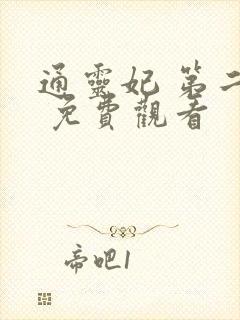 通靈妃 第二
免費觀看
帝吧1